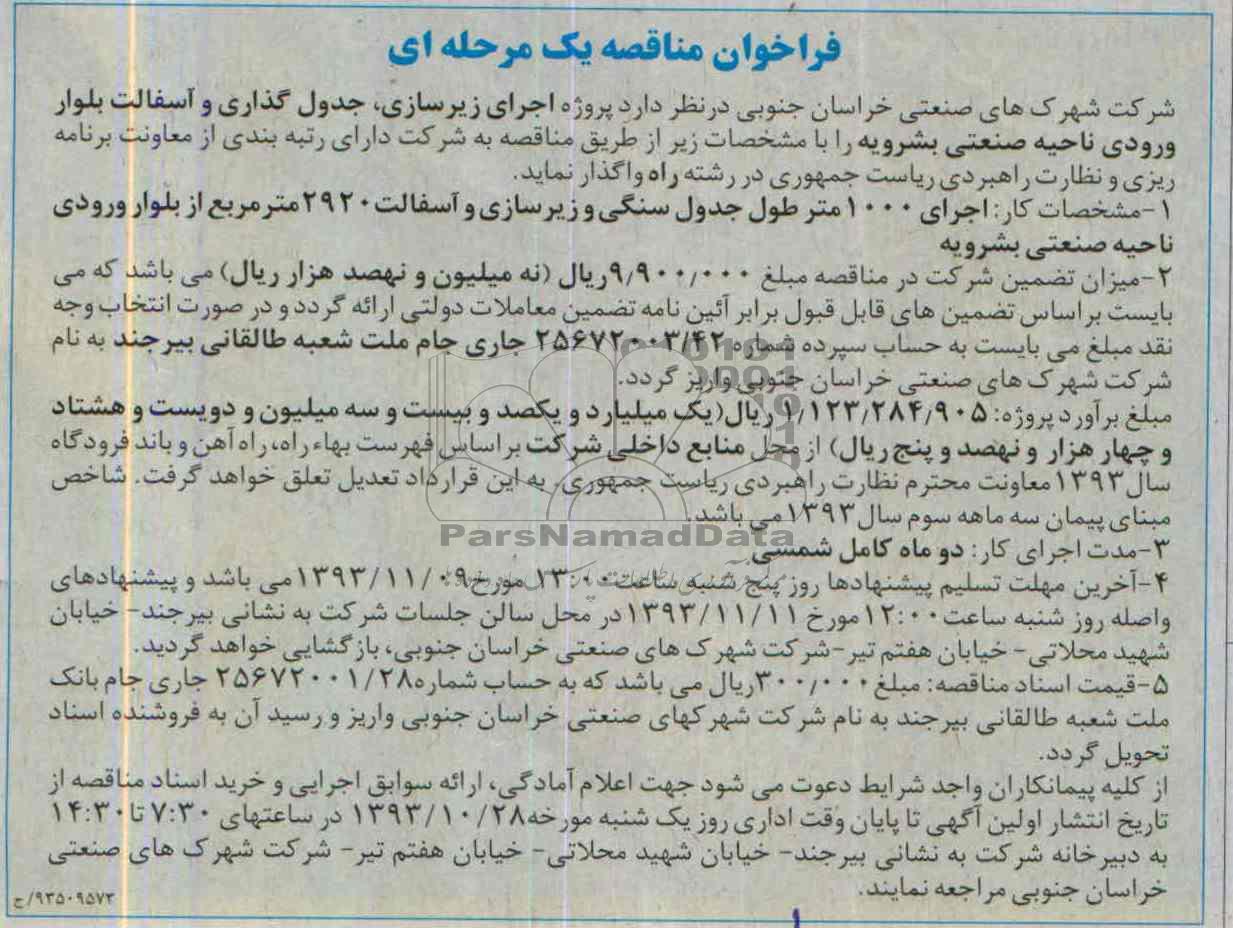 فراخوان مناقصه یک مرحله ای
شرکت شهرک های صنعتی خراسان جنوبی درنظر دارد پروژه اجرای زیرسازی، جدول گذاری و آسفالت بلوار
ورودی ناحیه صنعتی بشرویه را با مشخصات زیر از طریق مناقصه به شرکت دارای رتبه بندی از معاونت برنامه
ریزی و نظارت راهبردی ریاست جمهوری در رشته راه واگذار نماید.
۱-مشخصات کار: اجرای ۱۰۰۰ متر طول جدول سنگی و زیرسازی و آسفالت ۲۹۲۰ مترمربع از بلوار ورودی
ناحیه صنعتی بشرویه
۲-میزان تضمین شرکت در مناقصه مبلغ ۹٫۹۰۰٫۰۰۰ ریال (نه میلیون و نهصد هزار ریال) می باشد که می
بایست براساس تضمین های قابل قبول برابر آئین نامه تضمین معاملات دولتی ارائه گردد و در صورت انتخاب وجه
نقد مبلغ می بایست به حساب سپرده شماره ۲۵۶۷۲۰۰۳/۴۲ جاری جام ملت شعبه طالقانی بیرجند به نام
شرکت شهرک های صنعتی خراسان جنوبی واریز گردد.
مبلغ برآورد پروژه: ۱٫۱۲۳٫۲۸۴٫۹۰۵ ریال(یک میلیارد و یکصد و بیست و سه میلیون و دویست و هشتاد
و چهار هزار و نهصد و پنج ریال) از محل منابع داخلی شرکت بر اساس فهرست بهاء راه، راه آهن و باند فرودگاه
سال ۱۳۹۳ معاونت محترم نظارت راهبردی ریاست جمهوری. به این قرارداد تعدیل تعلق خواهد گرفت. شاخص
مبنای پیمان سه ماهه سوم سال ۱۳۹۳ می باشد.
ParsNamadData
۳-مدت اجرای کار: دو ماه کامل شمسی
۴-آخرین مهلت تسلیم پیشنهادها روز پنج شنبه ساعت ۱۳:۰۰ مورخ ۱۳۹۳/۱۱/۰۹ می باشد و پیشنهادهای
واصله روز شنبه ساعت ۱۲:۰۰ مورخ ۱۳۹۳/۱۱/۱۱ در محل سالن جلسات شرکت به نشانی بیرجند- خیابان
شهید محلاتی- خیابان هفتم تیر-شرکت شهرک های صنعتی خراسان جنوبی، بازگشایی خواهد گردید.
۵-قیمت اسناد مناقصه: مبلغ ۳۰۰٫۰۰۰ ریال می باشد که به حساب شماره ۲۵۶۷۲۰۰۱/۲۸ جاری جام بانک
ملت شعبه طالقانی بیرجند به نام شرکت شهرکهای صنعتی خراسان جنوبی واریز و رسید آن به فروشنده اسناد
تحویل گردد.
از کلیه پیمانکاران واجد شرایط دعوت می شود جهت اعلام آمادگی، ارائه سوابق اجرایی و خرید اسناد مناقصه از
تاریخ انتشار اولین آگهی تا پایان وقت اداری روز یک شنبه مورخه ۱۳۹۳/۱۰/۲۸ در ساعتهای ۷:۳۰ تا ۱۴:۳۰
به دبیرخانه شرکت به نشانی بیرجند- خیابان شهید محلاتی- خیابان هفتم تیر- شرکت شهرک های صنعتی
خراسان جنوبی مراجعه نمایند.
۹۳۵۰۹۵۷۳/ج